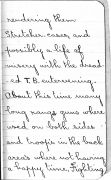 rendering them
Stretcher cases, and
possibly a life of
misery with the dread-
ed T.B. entervening.
About this time many
long range guns where
used on both sides
and troops in the back
areas where not having
a happy time, fighting